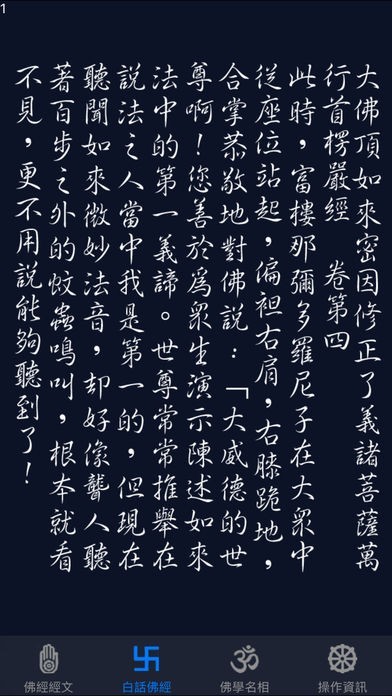 1
大佛頂如來密因修正了義諸菩薩萬
行首楞嚴經　卷第四
此時，富樓那彌多羅尼子在大眾中
從座位站起，偏袒右肩，右膝跪地，
合掌恭敬地對佛說：「大威德的世
尊啊！您善於為眾生演示陳述如來
法中的第一義諦。世尊常常推舉在
說法之人當中我是第一的，但現在
聽聞如來微妙法音，却好像聾人聽
著百步之外的蚊蟲鳴叫，根本就看
不見，更不用說能夠聽到了！
佛經經文
白話佛經
佛學名相
操作資訊